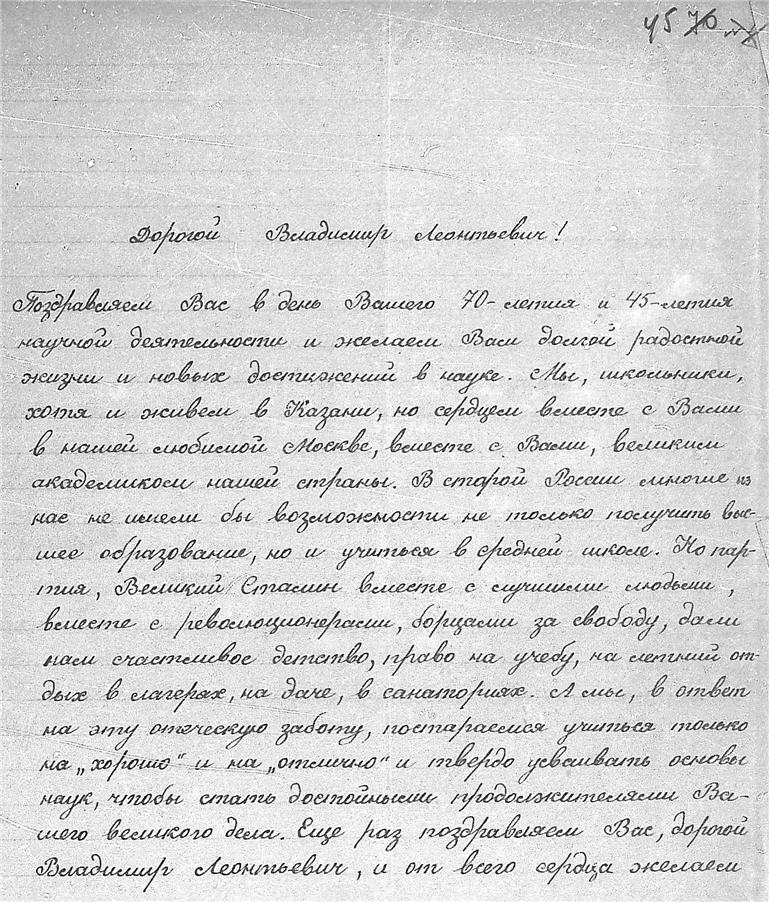 45 70
Дорогой Владимир Леонтьевич!
Поздравляем Вас в день Вашего 70-летия и 45-летия
научной деятельности и желаем Вам долгой радостной
жизни и новых достижений в науке. Мы, школьники,
хотя и живем в Казани, но сердцем вместе с Вами
в нашей любимой Москве, вместе с Вами, великим
академиком нашей страны. В старой России многие из
нас не имели бы возможности не только получить выс-
шее образование, но и учиться в средней школе. Но пар-
тия, Великий Сталин вместе с лучшими людьми,
вместе с революционерами, борцами за свободу, дали
нам счастливое детство, право на учебу, на летний от-
дых в лагерях, на даче, в санаториях. А мы, в ответ
на эту отеческую заботу, постараемся учиться только
на „хорошо" и на „отлично" и твердо усваивать основы
наук, чтобы стать достойными продолжателями Ва-
шего великого дела. Еще раз поздравляем Вас, дорогой
Владимир Леонтьевич, и от всего сердца желаем